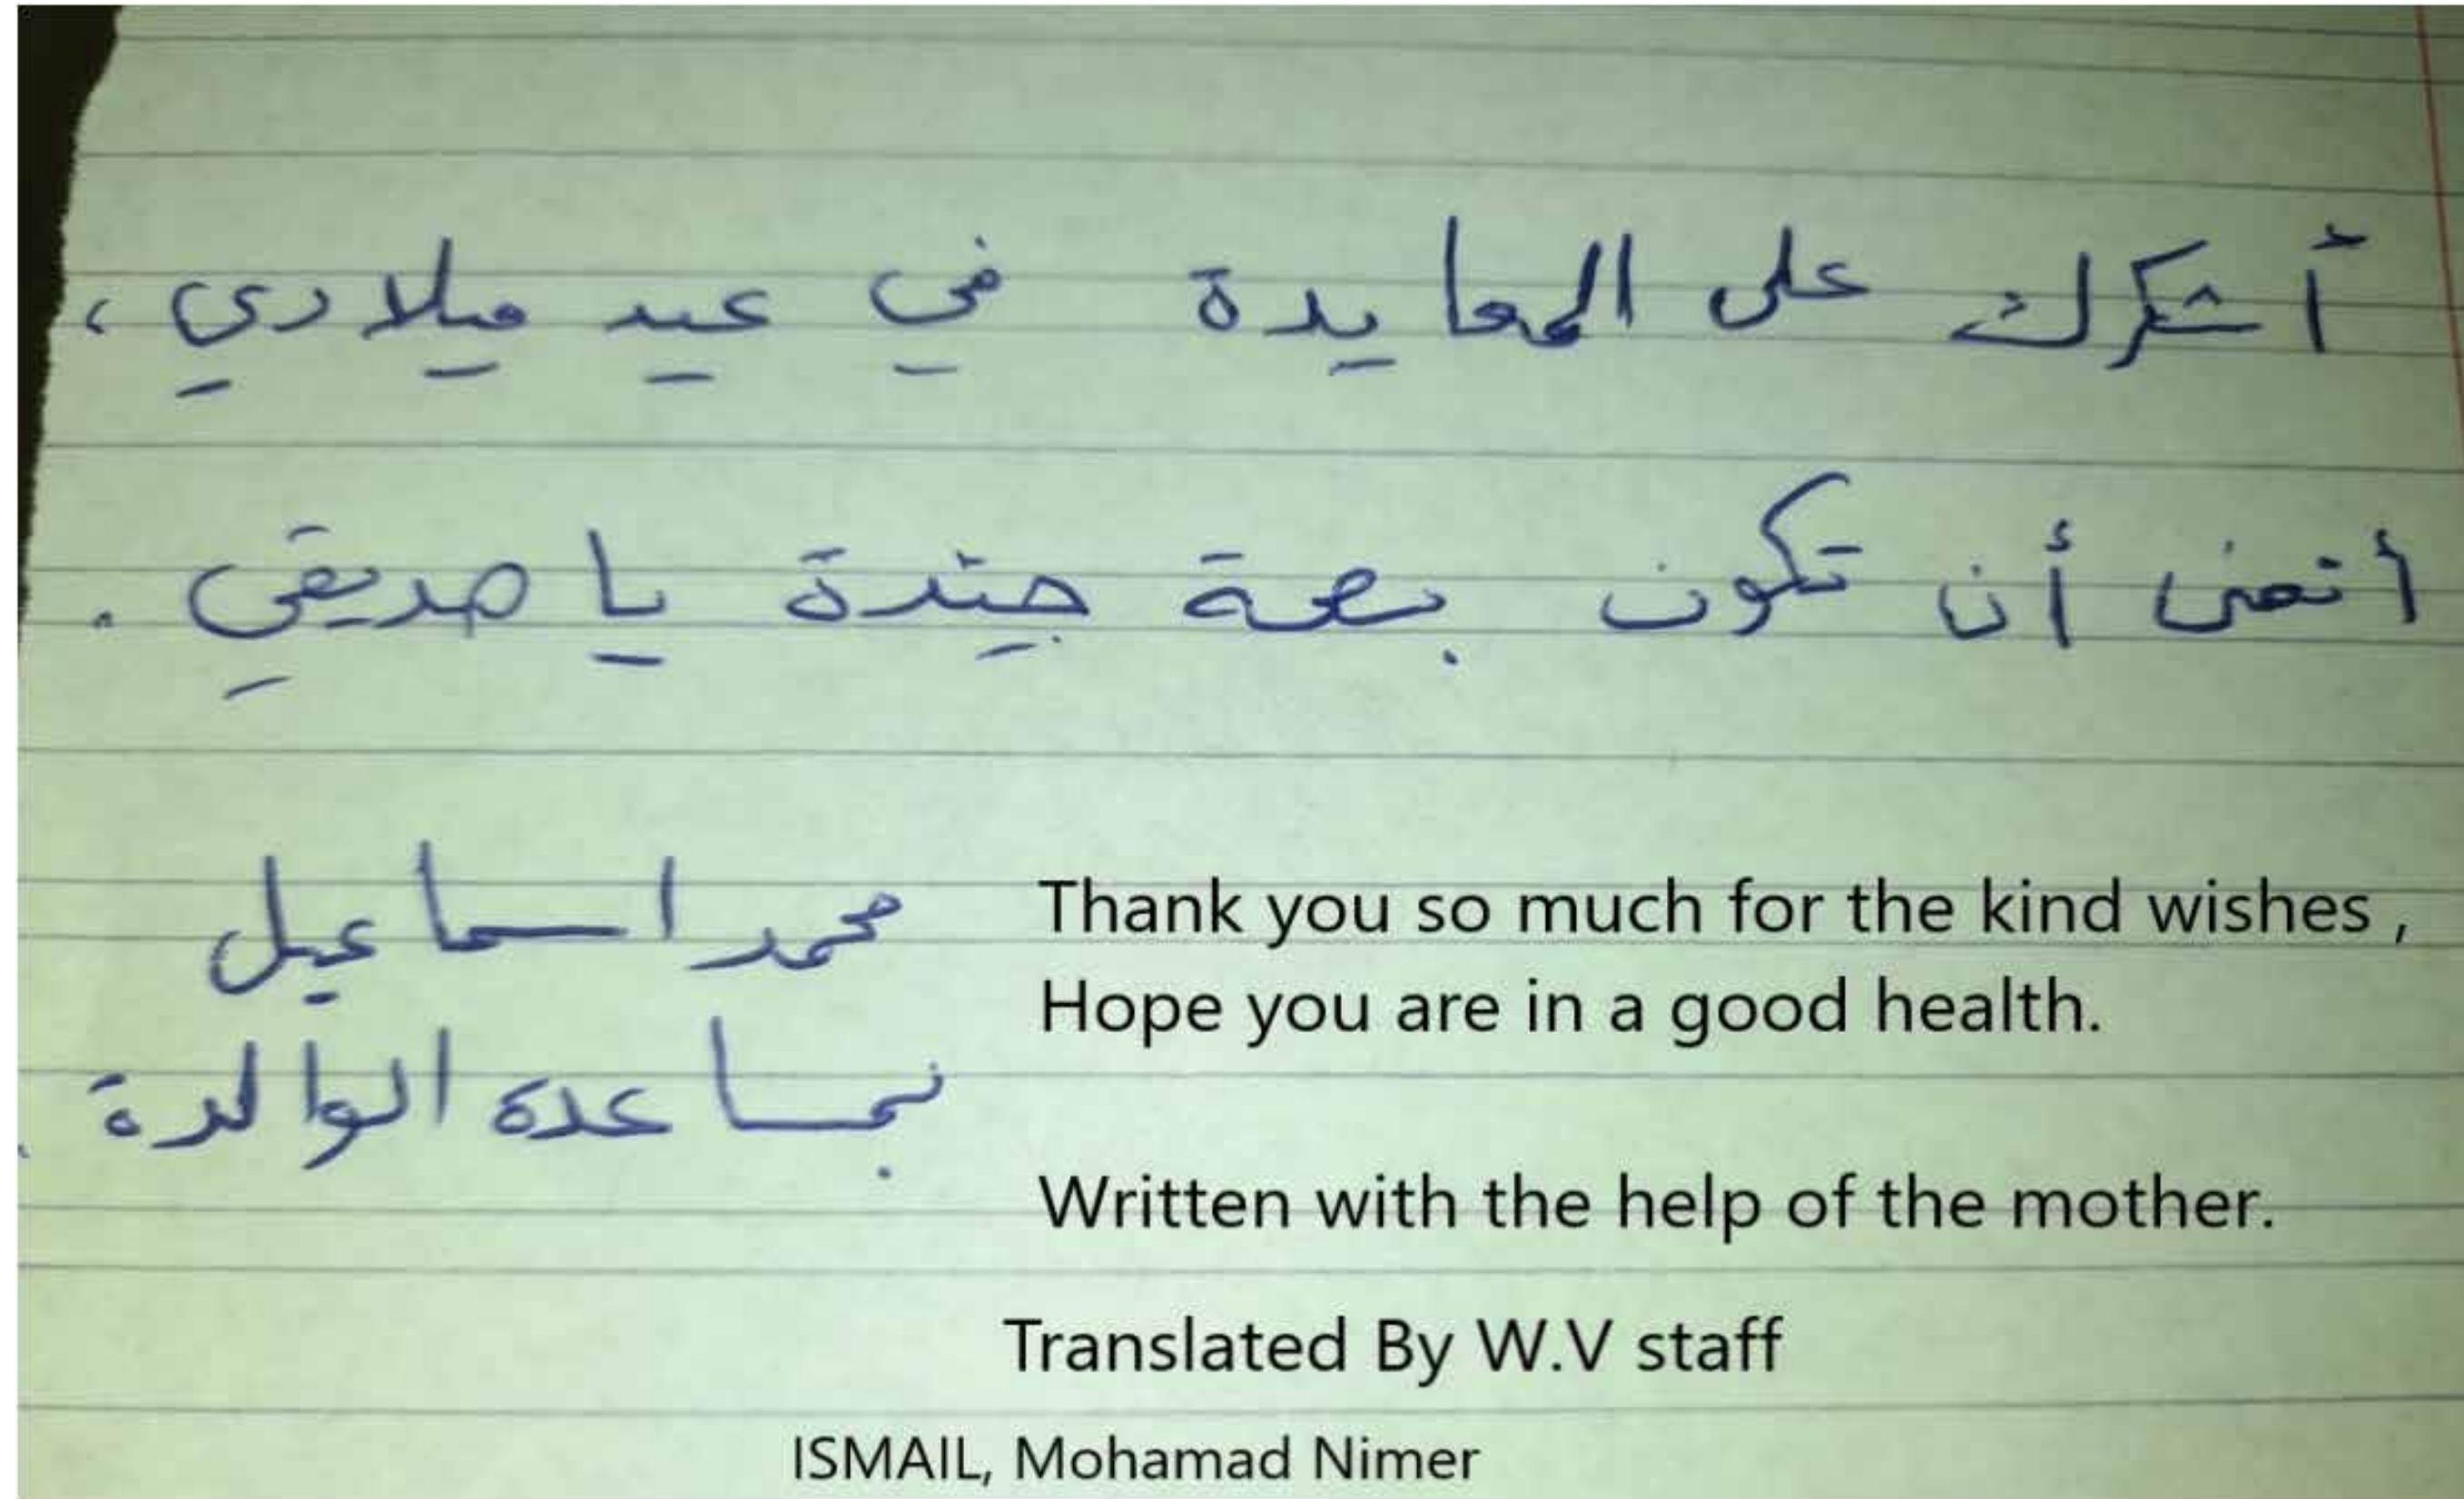 أشكرك على المعايدة في عيد ميلادي،
أتمنى أن تكون بصحة جيّدة يا صديقي.
محمد اسماعيل
بمساعدة الوالدة.
Thank you so much for the kind wishes ,
Hope you are in a good health.
Written with the help of the mother.
Translated By W.V staff
ISMAIL, Mohamad Nimer